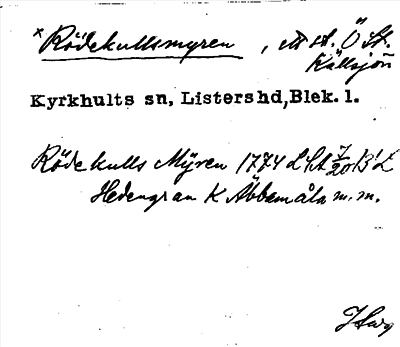 × Rödekullsmyren, m st. Ö St.
Källsjön
Kyrkhults sn, Listershd, Blek. l.
Rödekulls Myren 1774 LSA 7/20 B'L
Hedengran K Abbamåla m.m.